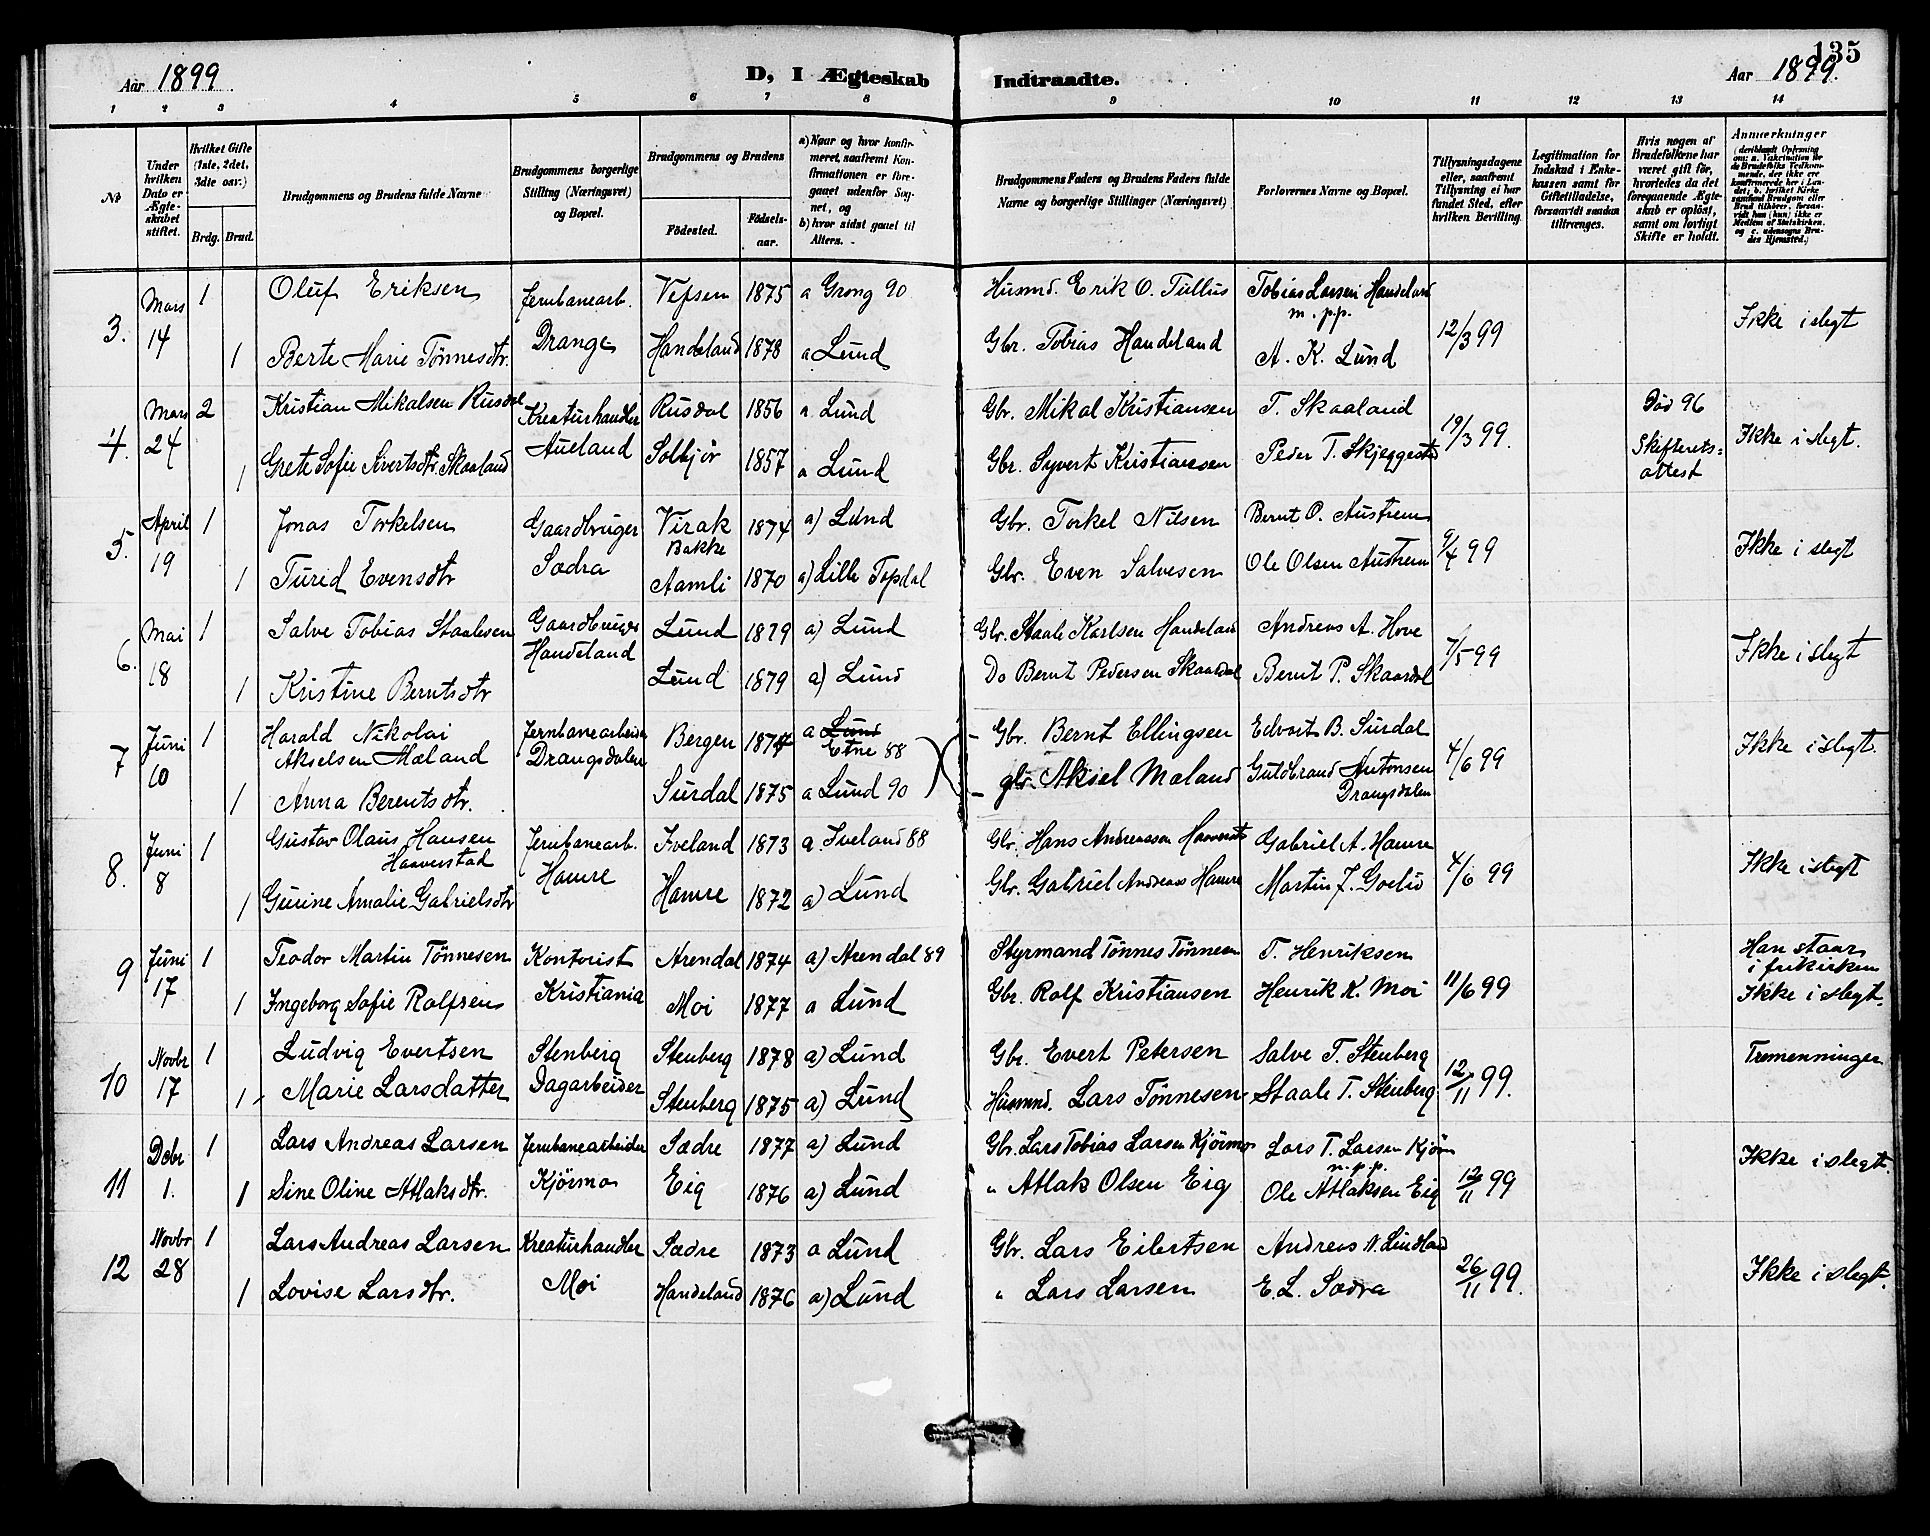 135
Aar 1899
D, I Ægteskab Indtraadte.
Aar 1899.
1 2 3 4 5 6 7 8 9 10 11 12 13 14
№
Under hvilken Dato er Ægteskabet stiftet.
Hvilket Gifte (1ste, 2det, 3die osv.)
Brdg. Brud.
Brudgommens og Brudens fulde Navne
Brudgommens borgerlige Stilling (Næringsvei) og Bopæl.
Brudgommens og Brudens
Fødested.
Fødselsaar.
a) Naar og hvor konfirmeret, saafremt Konfirmationen er foregaaet udenfor Sognet, og
b) hvor sidst gaaet til Alters.
Brudgommens Faders og Brudens Faders fulde Navne og borgerlige Stillinger (Næringsvei)
Forlovernes Navne og Bopæl.
Tillysningsdagene eller, saafremt Tillysning ei har fundet Sted, efter hvilken Bevilling.
Legitimation for Indskud i Enkekassen samt for Giftetilladelse, forsaavidt saadan tiltrænges.
Hvis nogen af Brudefolkene har været gift før, hvorledes da det foregaaende Ægteskab er opløst, samt om lovligt Skifte er holdt.
Anmærkninger
3. Mars 14 1 Oluf Eriksen Jernbanearb. Vefsen 1875 a Grong 90 Husmd. Erik O. Tullus Tobias Larsen Handeland m. p.p. 12/3 99 Ikke i slegt
1 Berte Marie Tönnesdtr. Drange Handeland 1878 a Lund Gbr. Tobias Handeland A. K. Lund
4. Mars 24 2 Kristian Mikalsen Rusdal Kreaturhandler Rusdal 1856 a. Lund Gbr. Mikal Kristiansen T. Skaaland 19/3 99. Död 96 Ikke i slegt.
1 Grete Sofie Sivertsdtr Skaaland Aueland Solbjör 1857 a Lund Gbr. Syvert Kristiansen Peder T. Skjeggestad Skifterets=attest
5. April 19 1 Jonas Torkelsen Gaardbruger Virak Bakke 1874 a) Lund Gbr. Torkel Nilsen Bernt O. Austrem 9/4 99 Ikke i slegt
1 Turid Evensdtr Sædra Aamli 1870 a) Lille Topdal Gbr. Even Salvesen Ole Olsen Austrem
6. Mai 18 1 Salve Tobias Staalesen Gaardbruger Lund 1879 a) Lund Gbr. Staale Karlsen Handeland Andreas A. Hove 7/5 99 Ikke i slegt
1 Kristine Berntsdtr Handeland Lund 1879 a) Lund Do Bernt Pedersen Skaardal Bernt P. Skaardal
7 Juni 10 1 Harald Nikolai Akselsen Mæland Jernbanearbeider Drangsdalen Bergen 1874 a Lund Etne 88 Gbr. Bernt Ellingsen Edvart B. Surdal 4/6 99 Ikke i slegt.
1 Anna Berentsdtr. Surdal 1875 a Lund 90 gbr. Aksel Mæland Guldbrand Antonsen Drangsdalen
8. Juni 8 1 Gustav Olaus Hansen Haaverstad Jernbanearb. Iveland 1873 a. Iveland 88 Gbr. Hans Andreassen Haaverstad Gabriel A. Hamre 4/6 99 Ikke i slegt
1 Gurine Amalie Gabrielsdtr Hamre Hamre 1872 a) Lund Gbr. Gabriel Andreas Hamre Martin J.
9 Juni 17 1 Teodor Martin Tönnesen Kontorist Arendal 1874 a) Arendal 89 Styrmand Tönnes Tönnesen T. Henriksen 11/6 99 Han staar i frikirken
1 Ingeborg Sofie Rolfsen Kristiania Moi 1877 a Lund Gbr. Rolf Kristiansen Henrik K. Moi Ikke i slegt.
10 Novbr 17 1 Ludvig Evertsen Stenberg Stenberg 1878 a) Lund Gbr. Evert Petersen Salve T. Stenberg 12/11 99. Tremenninger
1 Marie Larsdatter Dagarbeider Stenberg 1875 a) Lund Husmnd. Lars Tönnesen Staale T. Stenberg
11 Dcbr 1. 1 Lars Andreas Larsen Jernbanearbeider Sædre 1877 a) Lund Gbr. Lars Tobias Larsen Kjörmo Lars T. Larsen Kjörm m.p.p. 12/11 99 Ikke i slegt.
1 Sine Oline Atlaksdtr. Kjörmo Eig 1876 a) Lund " Atlak Olsen Eig Ole Atlaksen Eig
12 Novbr 28 1 Lars Andreas Larsen Kreaturhandler Sædre 1873 a Lund Gbr. Lars Eilertsen Andreas N. Lindland 26/11 99. Ikke i slegt.
1 Lovise Larsdtr. Moi Handeland 1876 a) Lund " Lars Larsen E. L. Sædra